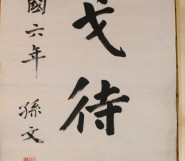 戈待
國六年
孫文